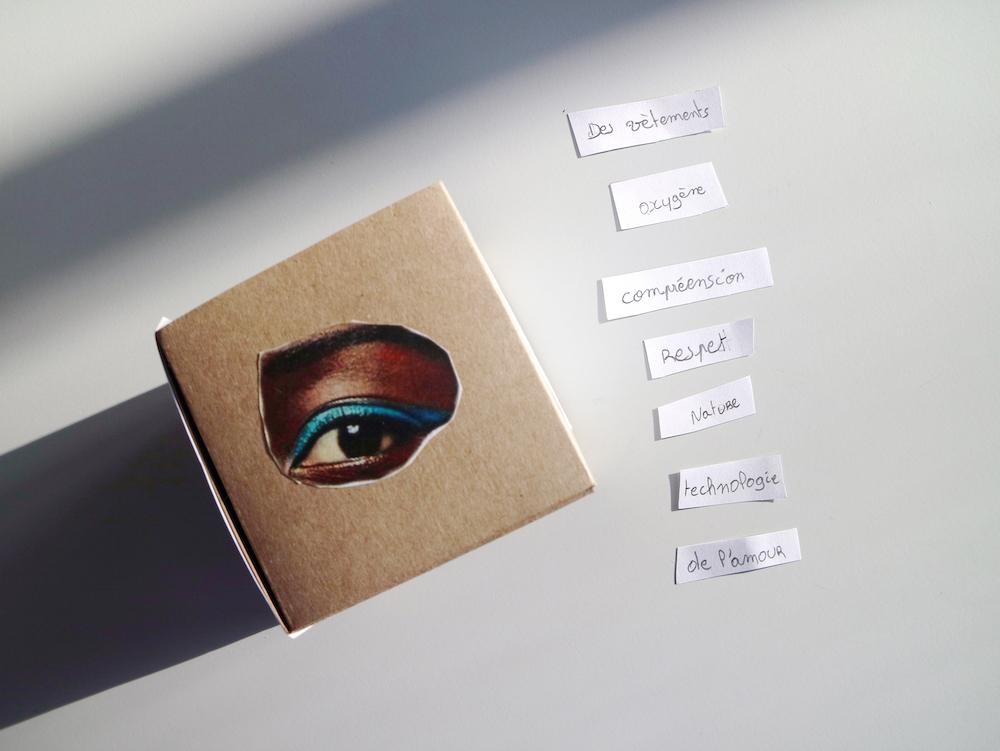 Des vètements
oxygène
compréension
Respet
Nature
technologie
de l'amour